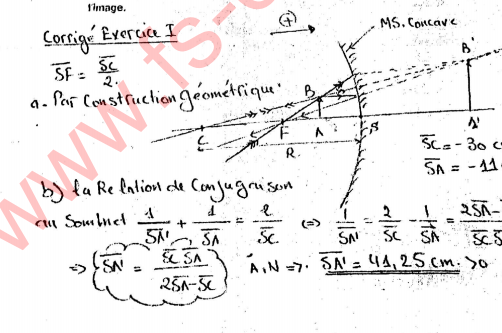 l'image.
Corrigé Exercice I
(+)
MS. Concave
SF = SC/2
a- Par Construction géométrique.
B
B'
C F A S A'
R
SC = -30 c
SA = -11
b) la Relation de Conjugaison
au Sommet 1/SA' + 1/SA = 2/SC <=> 1/SA' = 2/SC - 1/SA = 2SA-
SC S
=> SA' = SC SA / 2SA-SC A,N =>. SA' = 41,25 cm. >0
www.fs-